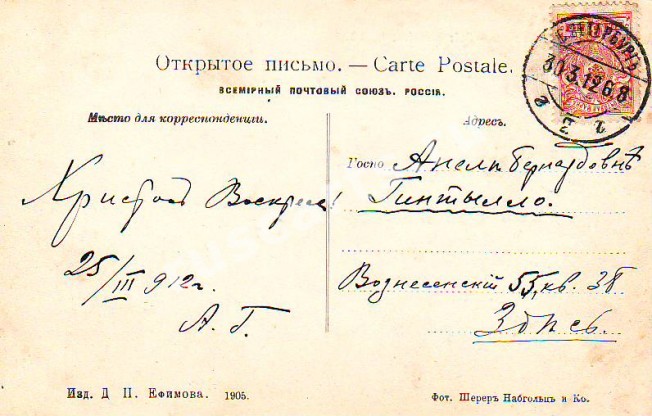 Открытое письмо. — Carte Postale.
ВСЕМІРНЫЙ ПОЧТОВЫЙ СОЮЗЪ. РОССІЯ.
Мѣсто для корреспонденціи.
Адресъ.
Христосъ Воскресе!
25/III 912 г.
А. Г.
Госпо Анели Бернардовнѣ
Гинтылло.
Вознесенскій 55, кв. 36
Здѣсь.
30.3.12
Изд. Д. П. Ефимова. 1905.
Фот. Шереръ Набгольцъ и Ко.